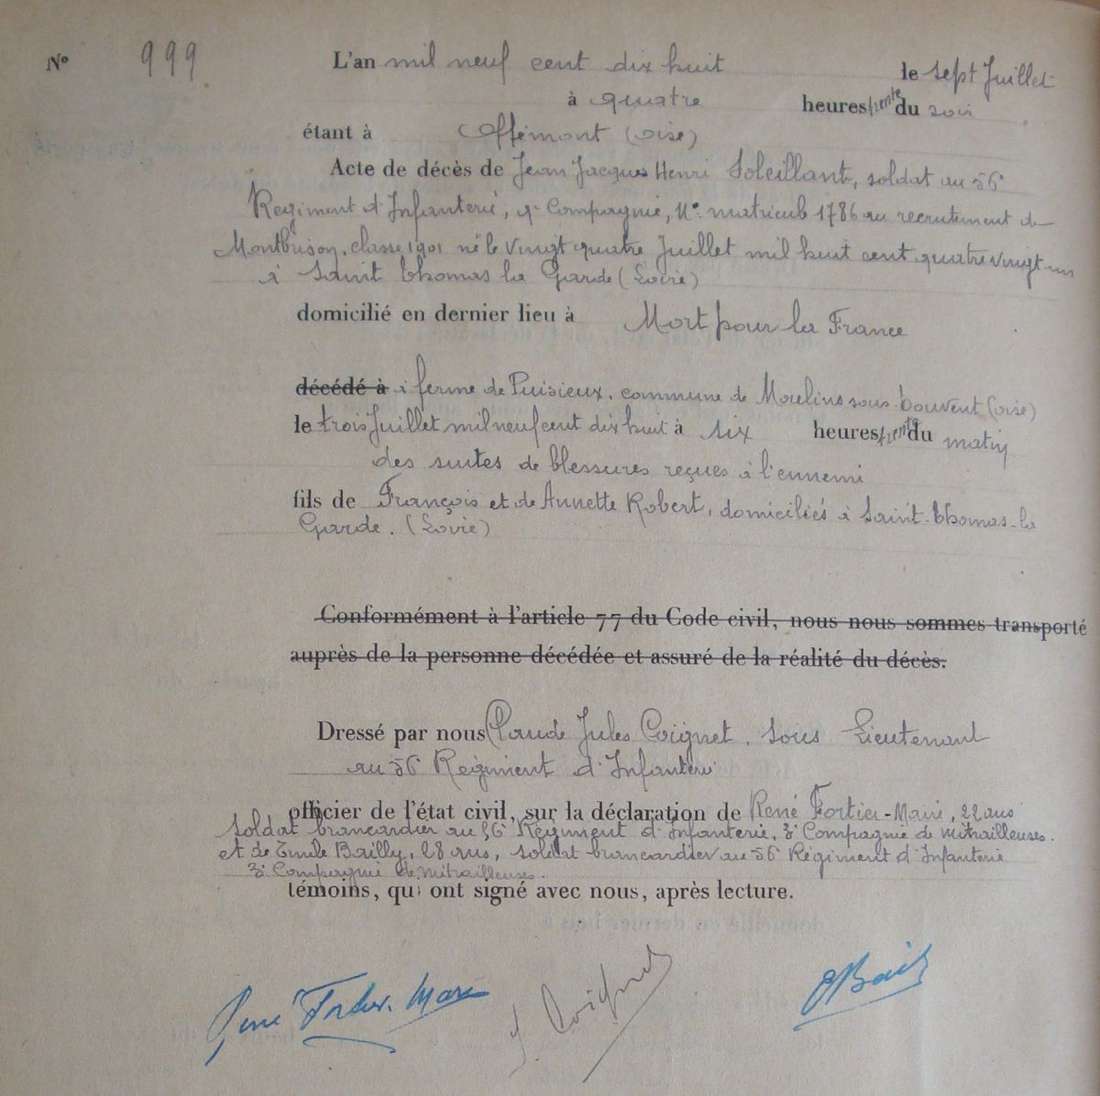 N° 999
L'an mil neuf cent dix huit le sept Juillet
à quatre heures trente du soir
étant à Offémont (oise)
Acte de décès de Jean Jacques Henri Soleillant, soldat au 56e
Regiment d'Infanterie, 9e Compagnie, N° matricule 1786 au recrutement de
Montbrison, classe 1901 né le vingt quatre Juillet mil huit cent quatre vingt un
à Saint thomas la Garde (Loire)
domicilié en dernier lieu à Mort pour la France
décédé à à ferme de Puisieux, commune de Moulins sous bouvent (oise)
le trois Juillet mil neuf cent dix huit à six heures trente du matin
des suites de blessures reçues à l'ennemi
fils de François et de Annette Robert, domiciliés à Saint-thomas-la
Garde. (Loire)
Conformément à l'article 77 du Code civil, nous nous sommes transporté
auprès de la personne décédée et assuré de la réalité du décès.
Dressé par nous Claude Jules Coignet, Sous Lieutenant
au 56 Regiment d'Infanterie
officier de l'état civil, sur la déclaration de René Fortier-Maire, 22 ans
soldat brancardier au 56e Régiment d'Infanterie, 3e Compagnie de mitrailleuses.
et de Emile Bailly, 28 ans, soldat brancardier au 56e Régiment d'Infanterie
3e Compagnie de mitrailleuses.
témoins, qui ont signé avec nous, après lecture.
René Fortier-Maire J. Coignet E Bailly